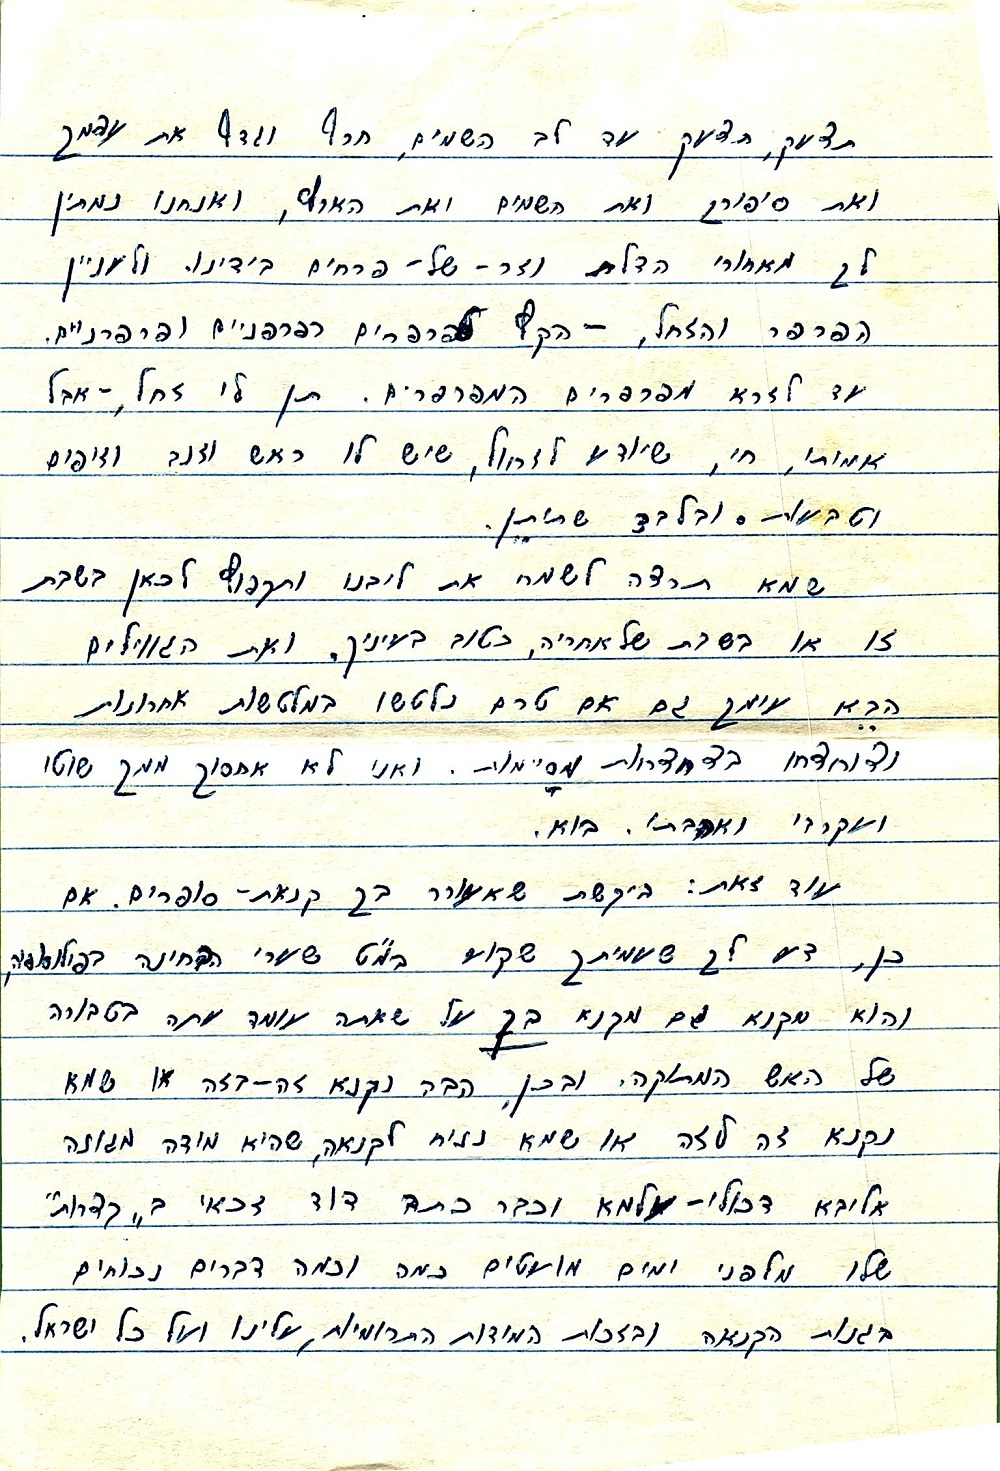 תצעק, תצעק עד לב השמים, חרף וגדף את עצמך
ואת סיפורך ואת השמים ואת הארץ, ואנחנו נמתין
לך מאחורי הדלת וזר-של-פרחים בידינו. ולעניין
הפרפר והזחל, - הקץ לפרפרים רפרפניים ופרפרניים.
עד לזרא מפרפרים המפרפרים. תן לי זחל, - אבל
אמיתי, חי, שיודע לזחול, שיש לו ראש וזנב וזיפים
וטבעות. ובלבד שתיתן.
שמא תרצה לשמח את ליבנו ותקפוץ לכאן בשבת
זו או בשבת שלאחריה, כטוב בעיניך. ואת הגווילים
הבא עימך גם אם טרם נלטשו במלטשות אחרונות
וצוחצחו בצחצחות מסיימות. ואני לא אחסוך ממך שוטי
ועקרבי ואהבתי. בוא.
עוד זאת: ביקשת שאעורר בך קנאת-סופרים. אם
כן, דע לך שעמיתך שקוע במ"ט שערי הבחינה בפילוסופיה,
והוא מקנא גם מקנא בך על שאתה עומד עתה בטבורה
של האש המתוקה. ובכן, הבה נקנא זה-בזה או שמא
נקנא זה לזה או שמא נניח לקנאה, שהיא מידה מגונה
אליבא דכולי-עלמא וכבר כתב דוד זכאי ב"קצרות"
שלו מלפני ימים מועטים כמה וכמה דברים נכוחים
בגנות הקנאה ובזכות המידות התרומיות, עלינו ועל כל ישראל.